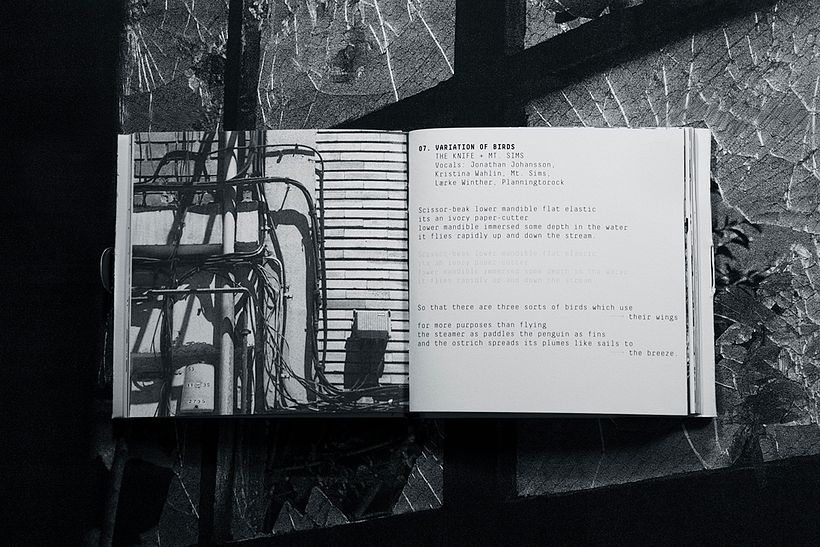 07. VARIATION OF BIRDS
THE KNIFE + MT. SIMS
Vocals: Jonathan Johansson,
Kristina Wahlin, Mt. Sims,
Lærke Winther, Planningtorock
Scissor-beak lower mandible flat elastic
its an ivory paper-cutter
lower mandible immersed some depth in the water
it flies rapidly up and down the stream.
Scissor-beak lower mandible flat elastic
its an ivory paper-cutter
lower mandible immersed some depth in the water
it flies rapidly up and down the stream.
So that there are three sorts of birds which use
their wings
for more purposes than flying
the steamer as paddles the penguin as fins
and the ostrich spreads its plumes like sails to
the breeze.